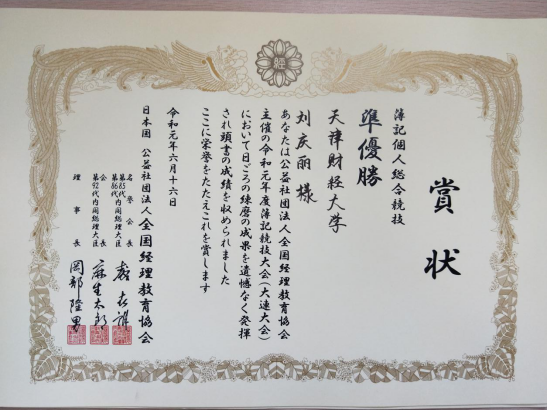 賞状
簿記個人総合競技
準優勝
天津财经大学
刘庆丽 様
あなたは公益社団法人全国経理教育協会
主催の令和元年度簿記競技大会(大連大会)
において日ごろの練磨の成果を遺憾なく発揮
され頭書の成績を収められました
ここに栄誉をたたえこれを賞します
令和元年六月十六日
日本国 公益社団法人 全国経理教育協会
名誉会長
第85代
第86代内閣総理大臣
森喜朗
会長
第92代内閣総理大臣
麻生太郎
理事長
岡部隆男